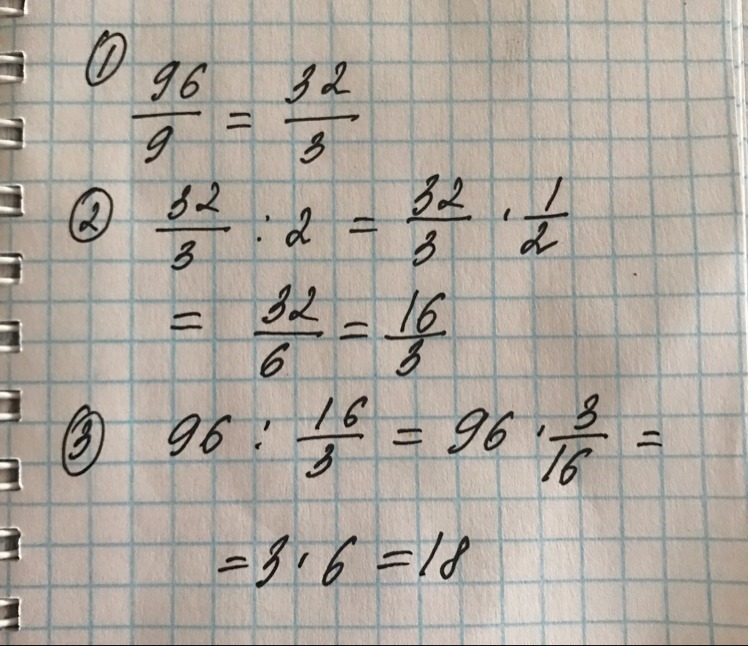 ① 96/9 = 32/3
② 32/3 : 2 = 32/3 · 1/2
= 32/6 = 16/3
③ 96 : 16/3 = 96 · 3/16 =
= 3 · 6 = 18